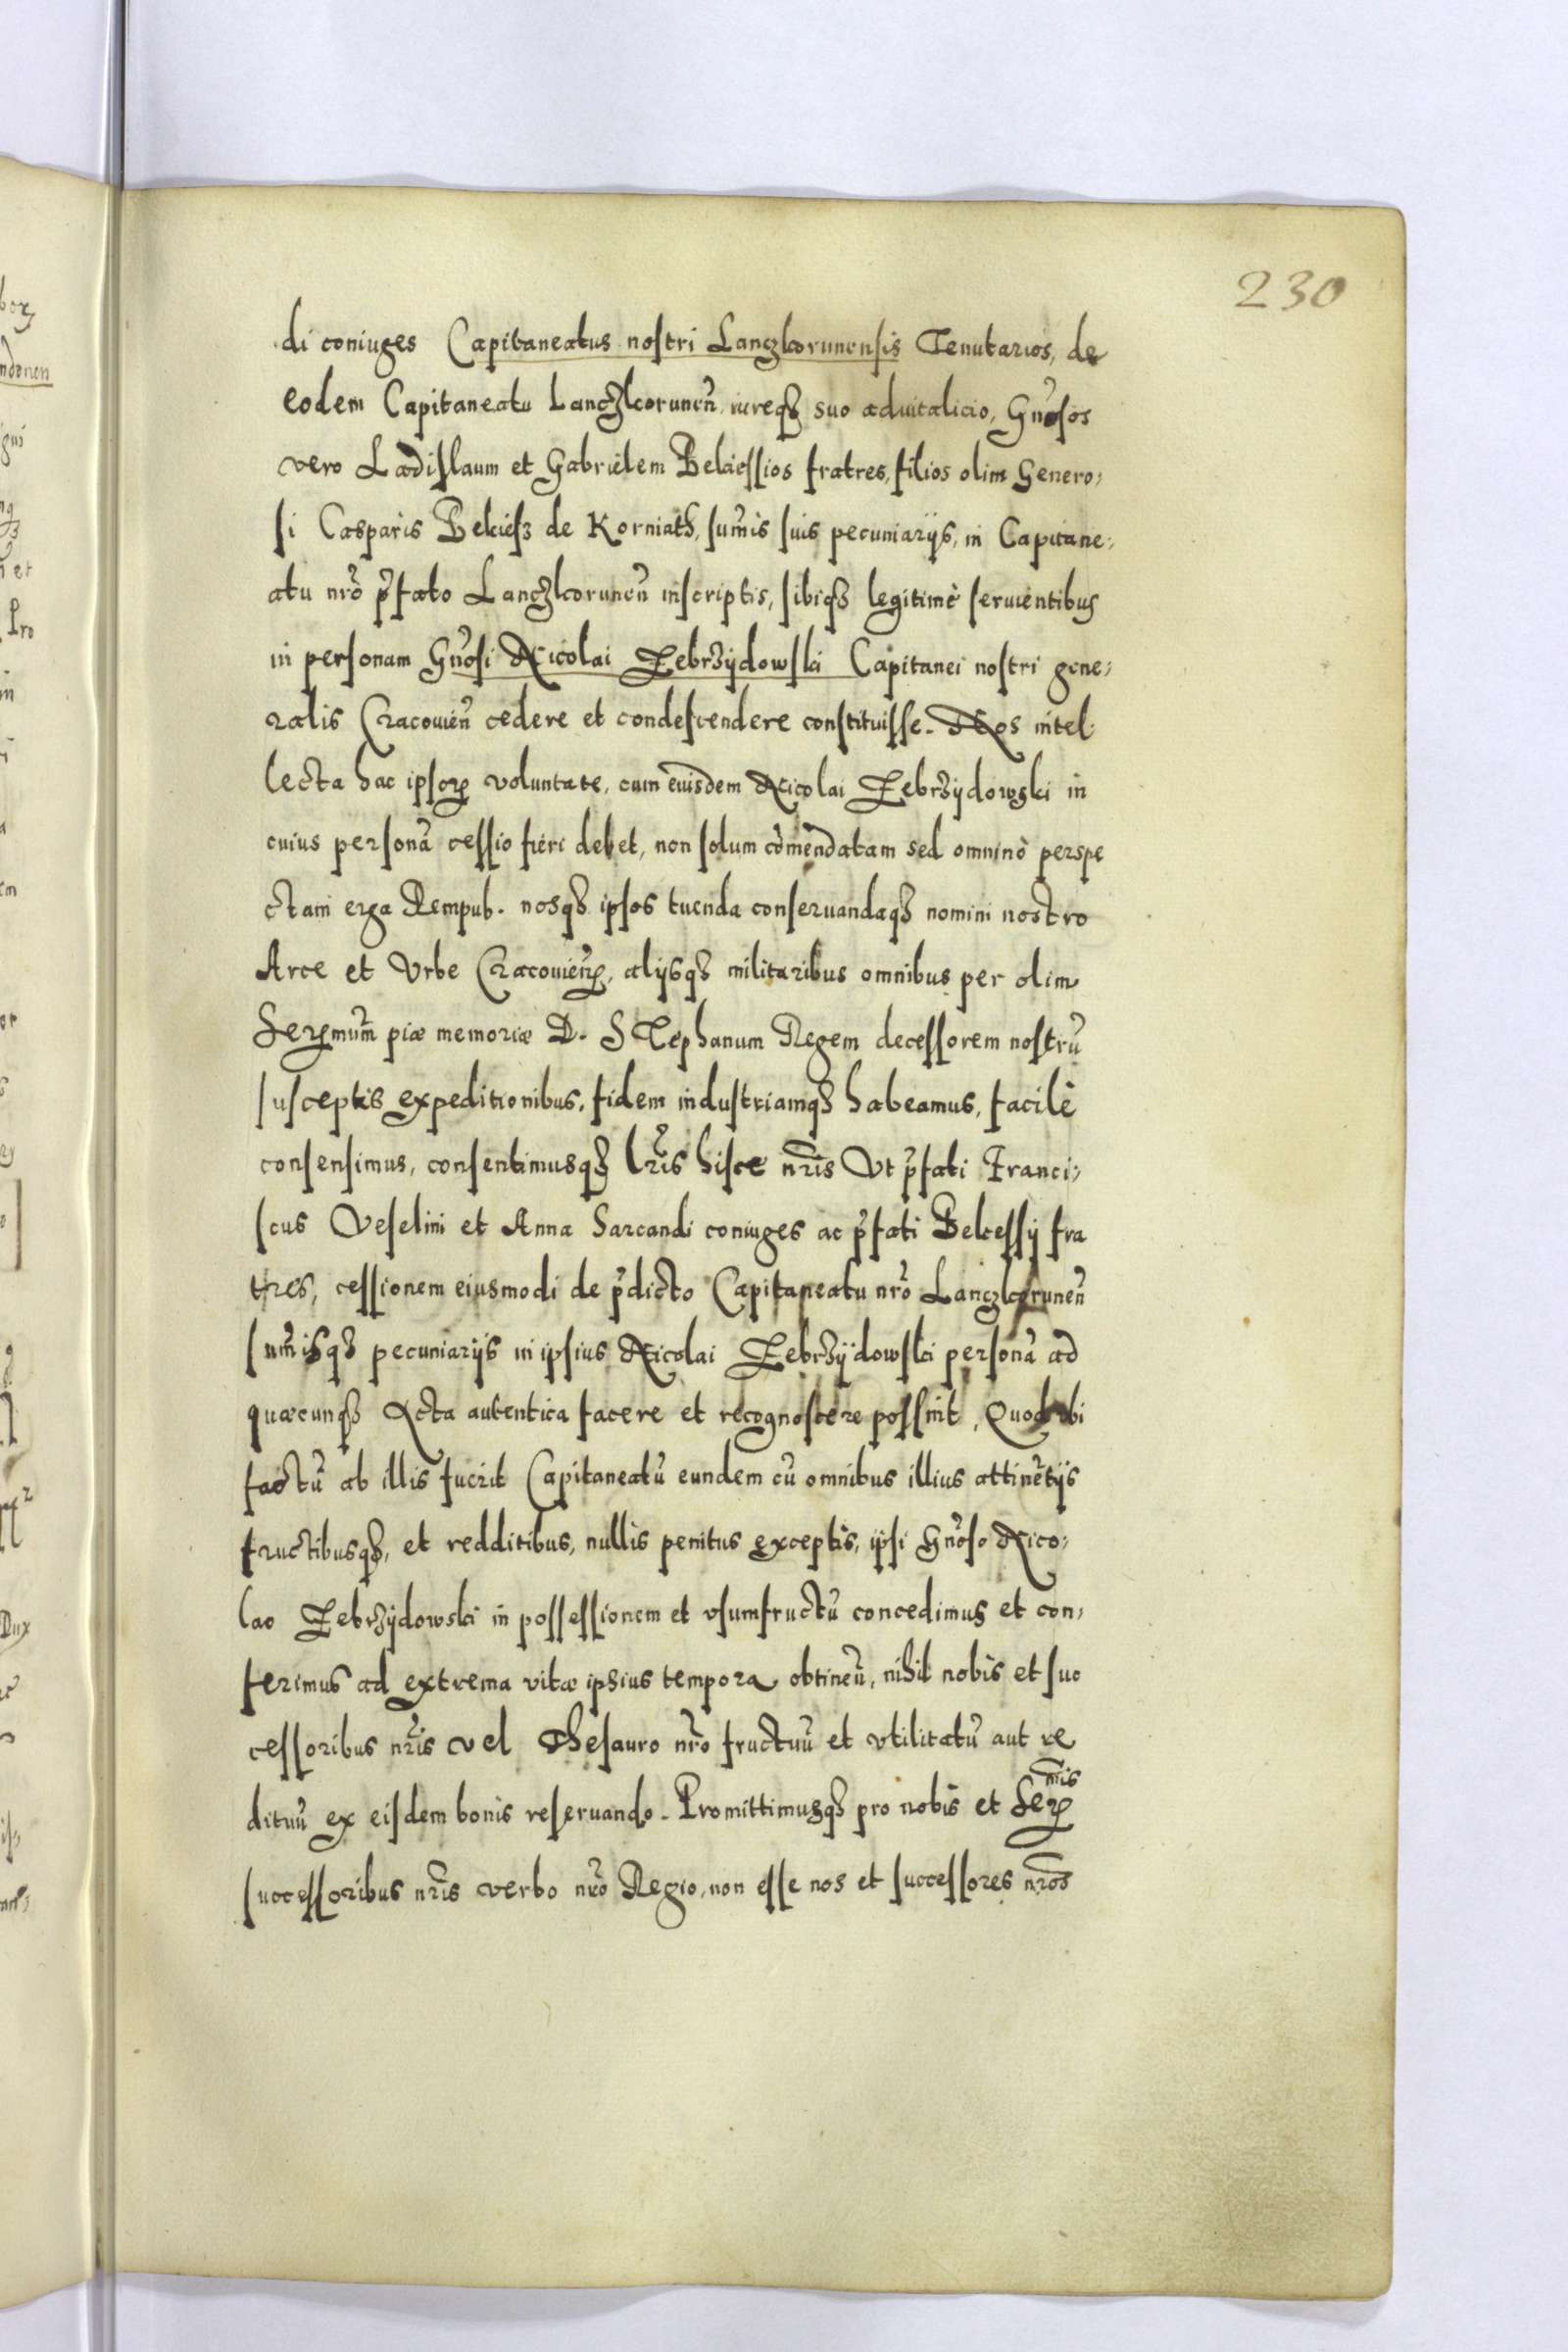 230
di coniuges Capitaneatus nostri Lanczkorunensis Tenutarios, de
eodem Capitaneatu Lanczkorunen̄, iureqȝ suo aduitalicio, Gn̄osos
vero Ladislaum et Gabrielem Bekiessios fratres, filios olim Genero,
si Casparis Bekiesz de Korniath, sum̄is suis pecuniarijs, in Capitane,
atu nr̄o p̄fato Lanczkorunen̄ inscriptis, sibiqȝ legitimè seruientibus
in personam Gn̄osi Nicolai Zebrzÿdowski Capitanei nostri gene,
ralis Cracouien̄ cedere et condescendere constituisse. Nos intel,
lecta hac ipsorꝝ voluntate, cum eiusdem Nicolai Zebrzÿdowski in
cuius personā cessio fieri debet, non solum cōmendatam sed omninò perspe
ctam erga Rempub. nosqȝ ipsos tuenda conseruandaqȝ nomini nostro
Arce et Vrbe Cracouien̄, alijsqȝ militaribus omnibus per olim
Serꝝmum̄ piæ memoriæ D. Stephanum Regem decessorem nostrū
susceptis expeditionibus, fidem industriamqȝ habeamus, facilè
consensimus, consentimusqȝ lr̄is hisce nr̄is Vt p̄fati Franci,
scus Veselini et Anna Sarcandi coniuges ac p̄fati Bekessij fra
tres, cessionem eiusmodi de p̄dicto Capitaneatu nr̄o Lanczkorunen̄
sum̄isqȝ pecuniarijs in ipsius Nicolai Zebrzÿdowski personā ad
quæcunqȝ Acta autentica facere et recognoscere possint, Quod vbi
factū ab illis fuerit Capitaneatū eundem cū omnibus illius attinētijs
fructibusqȝ, et redditibus, nullis penitus exceptis, ipsi Gn̄oso Nico,
lao Zebrzÿdowski in possessionem et vsumfructū concedimus et con,
ferimus ad extrema vitæ ipsius tempora obtinen̄, nihil nobis et suc
cessoribus nr̄is vel Thesauro nr̄o fructuū et vtilitatū aut re
dituū ex eisdem bonis reseruando. Promittimusqȝ pro nobis et Serꝝmis
successoribus nr̄is verbo nr̄o Regio, non esse nos et successores nr̄os